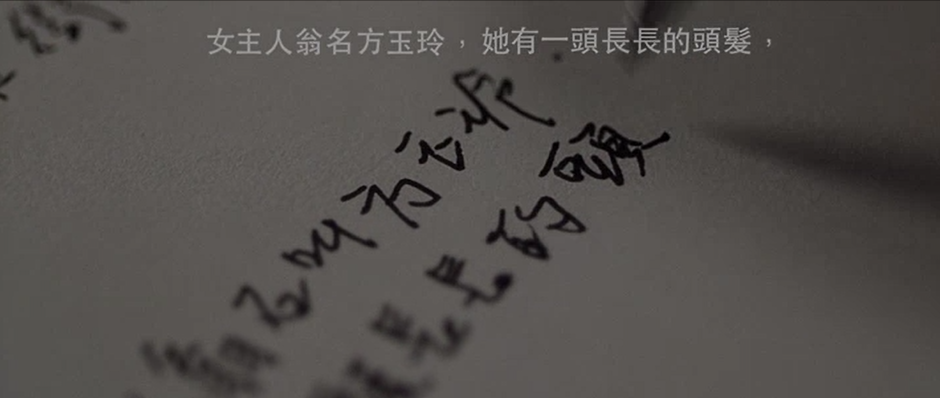 女主人翁名方玉玲，她有一頭長長的頭髮，
翁名叫方
長長的頭